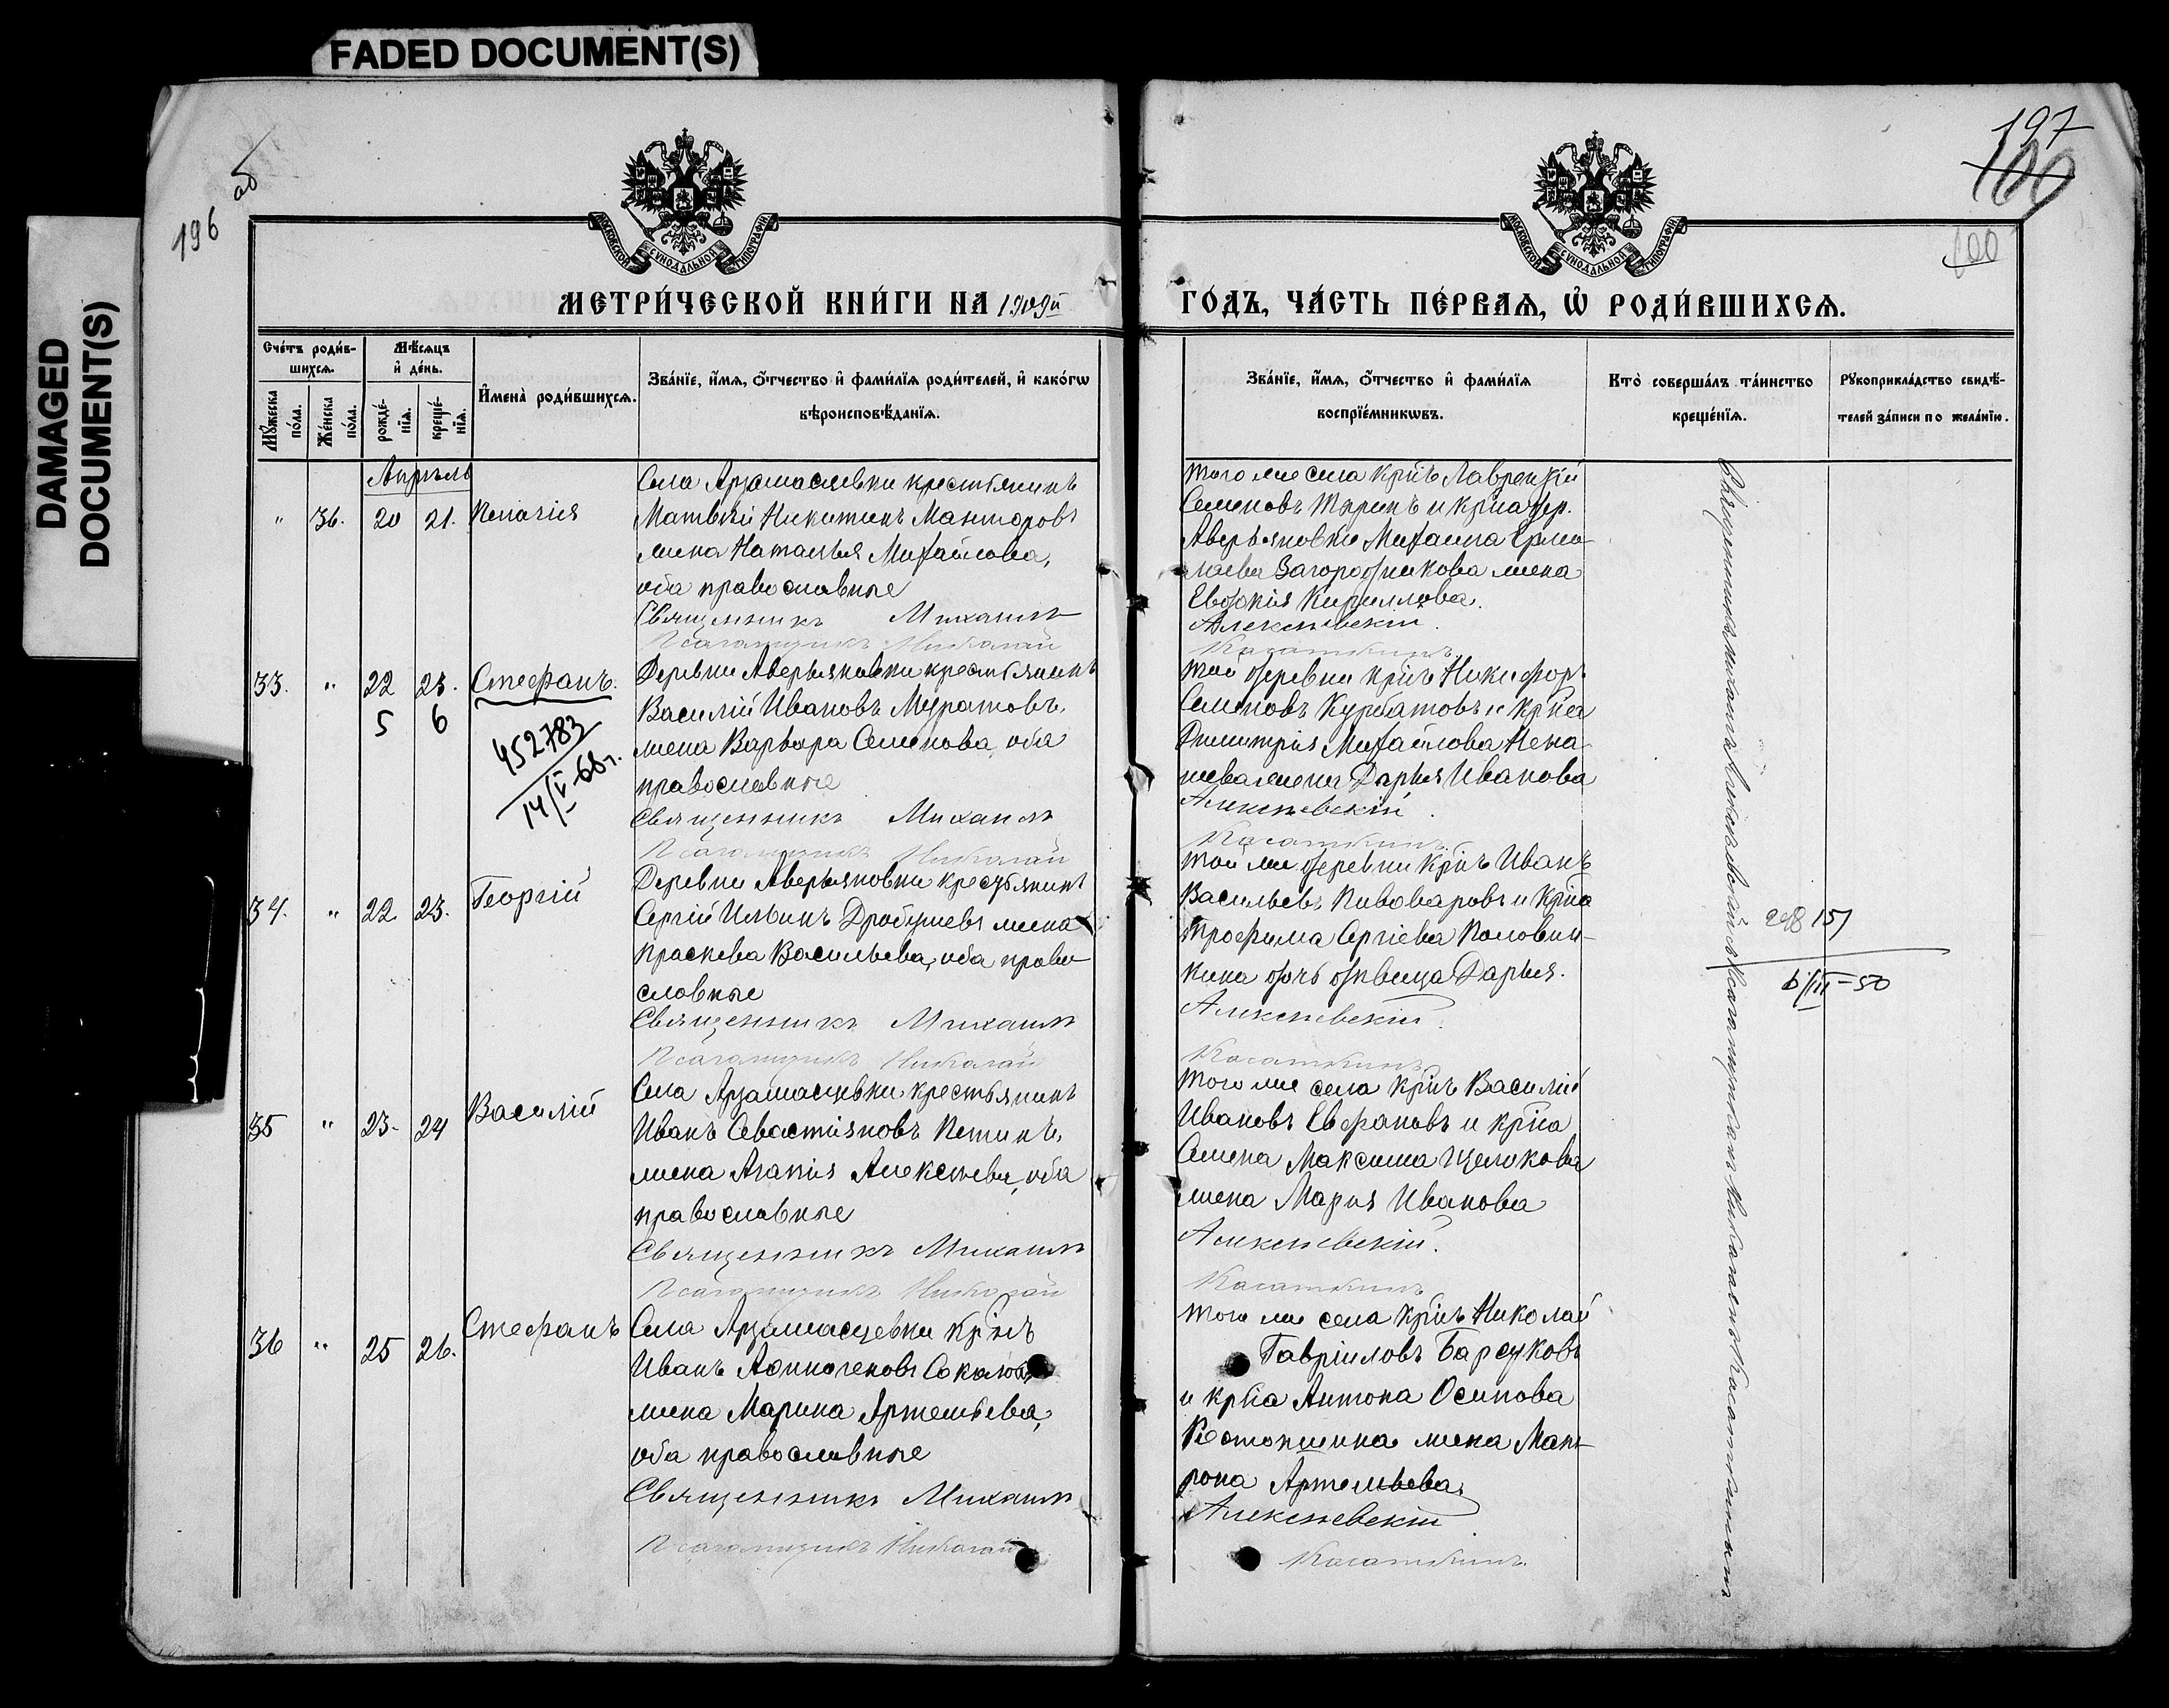 FADED DOCUMENT(S)
DAMAGED
DOCUMENT(S)
196
об
197
100
100
МОСКОВСКОЙ СѴНОДАЛЬНОЙ ТИПОГРАФІИ
МОСКОВСКОЙ СѴНОДАЛЬНОЙ ТИПОГРАФІИ
МЕТРИ́ЧЕСКОЙ КНИ́ГИ НА 1909й
ГО́ДЪ, ЧА́СТЬ ПЕ́РВАѦ, Ѡ҆ РОДИ́ВШИХСѦ.
Сче́тъ роди́в-
шихсѧ.
Мꙋ́жеска
по́ла.
Же́нска
по́ла.
Мѣ́сѧцъ
и҆ де́нь.
рожде́-
нїѧ.
креще́-
нїѧ.
И҆мена̀ роди́вшихсѧ.
Зва́нїе, и҆́мѧ, ѻ҆́тчество и҆ фами́лїѧ роди́телей, и҆ како́гѡ
вѣроисповѣ́данїѧ.
Зва́нїе, и҆́мѧ, ѻ҆́тчество и҆ фами́лїѧ
воспрїе́мникѡвъ.
Кто̀ соверша́лъ та́инство
креще́нїѧ.
Рꙋкоприкла́дство свидѣ́-
телей за́писи по жела́нїю.
Апрѣль
" 36. 20 21.
Села Арзамасцевки крестьянинъ
Матвѣй Никитинъ Манторовъ
жена Наталья Михайлова,
оба православные
Священникъ Михаилъ
Псаломщикъ Николай
того же села кр͠нъ Лаврентій
Семеновъ Тюринъ и кр͠на дер.
Аверьяновки Михаила Ермо-
лаева Загородникова жена
Евдокія Кириллова.
Алексѣевскій.
Касаткинъ.
33. " 22 23. Стефанъ.
5 6
452783
14/V-68г.
Деревни Аверьяновки крестьянинъ
Василій Ивановъ Муратовъ,
жена Варвара Семенова, оба
православные
Священникъ Михаилъ
Псаломщикъ Николай
той деревни кр͠нъ Никифоръ
Семеновъ Курбатовъ и кр͠на
Димитрія Михайлова
жена Дарья Иванова
Алексѣевскій.
Касаткинъ.
34. " 22. 23. Георгій
Деревни Аверьяновки крестьянинъ
Сергій Ильинъ Дробушевъ жена
Праскева Васильева, оба право-
славные
Священникъ Михаилъ
Псаломщикъ Николай
той же деревни кр͠нъ Иванъ
Васильевъ Пивоваровъ и кр͠на
Трофима Сергіева Половин-
кина дочь дѣвица Дарья.
Алексѣевскій.
Касаткинъ.
151
6/III-50
35 " 23. 24 Василій
Села Арзамасцевки крестьянинъ
Иванъ Севастіяновъ Петинъ,
жена Агапія Алексѣева, оба
православные
Священникъ Михаилъ
Псаломщикъ Николай
того же села кр͠нъ Василій
Ивановъ Евграновъ и кр͠на
Семена Максима Щелокова
жена Марія Иванова
Алексѣевскій.
Касаткинъ.
36 " 25 26. Стефанъ
Села Арзамасцевки кр͠нъ
Иванъ Афиногеновъ Соколовъ
жена Марина Артемьева,
оба православные
Священникъ Михаилъ
Псаломщикъ Николай
того же села кр͠нъ Николай
Гавріиловъ Барсуковъ
и кр͠на Антона Осипова
Костоншина жена Мат-
рона Артемьева.
Алексѣевскій.
Касаткинъ.